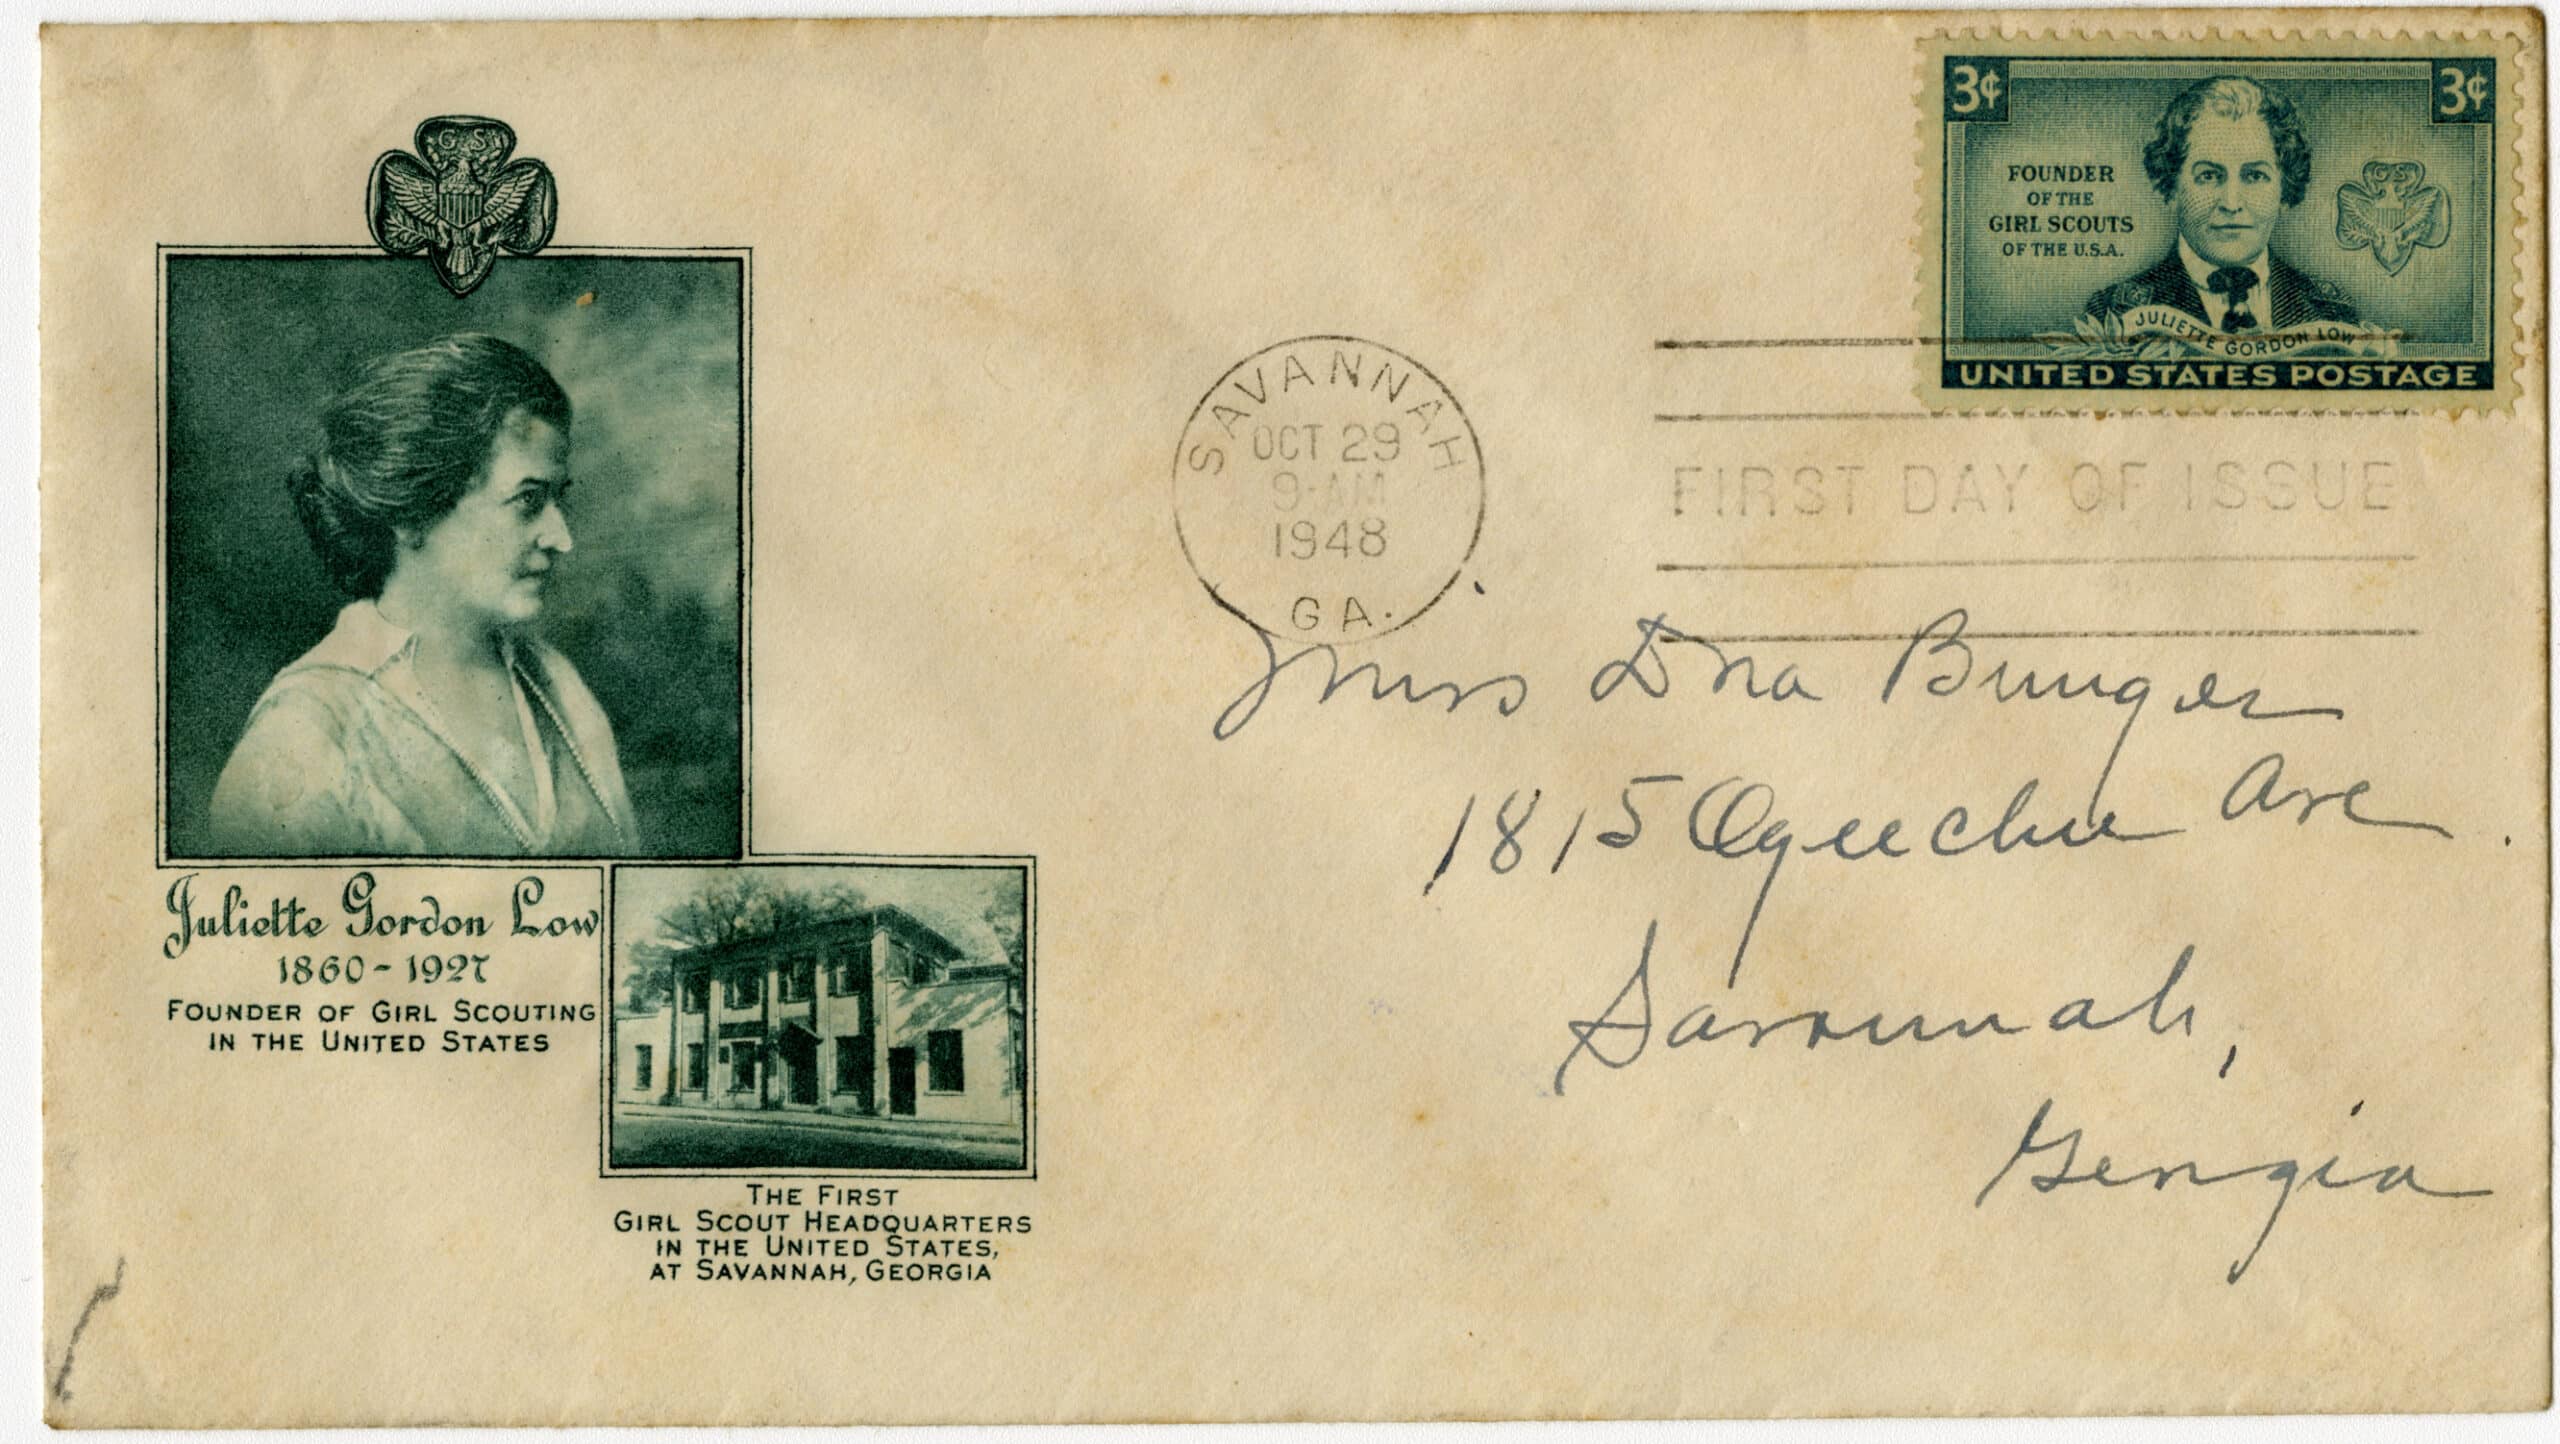 GS
Juliette Gordon Low
1860-1927
FOUNDER OF GIRL SCOUTING
IN THE UNITED STATES
THE FIRST
GIRL SCOUT HEADQUARTERS
IN THE UNITED STATES,
AT SAVANNAH, GEORGIA
SAVANNAH
OCT 29
9-AM
1948
GA.
3¢ 3¢
FOUNDER
OF THE
GIRL SCOUTS
OF THE U.S.A.
GS
JULIETTE GORDON LOW
UNITED STATES POSTAGE
FIRST DAY OF ISSUE
Miss Bunger
1815 Ogeechee Ave.
Savannah,
Georgia